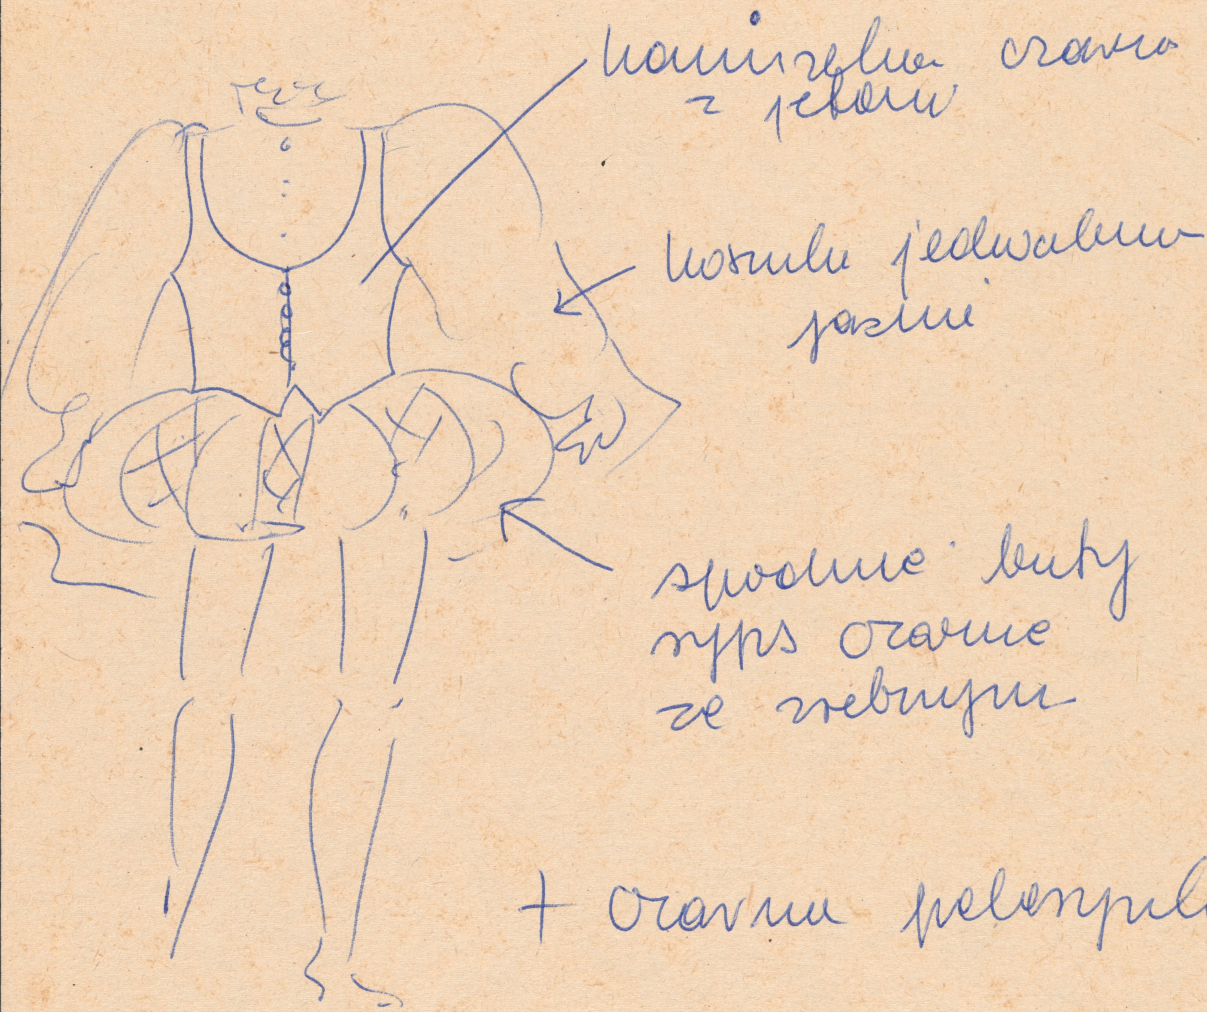 kamizelka czarna
z jetami
koszula jedwabna
jaśnie
spodnie buty
ryps czarne
ze srebrnym
+ czarna